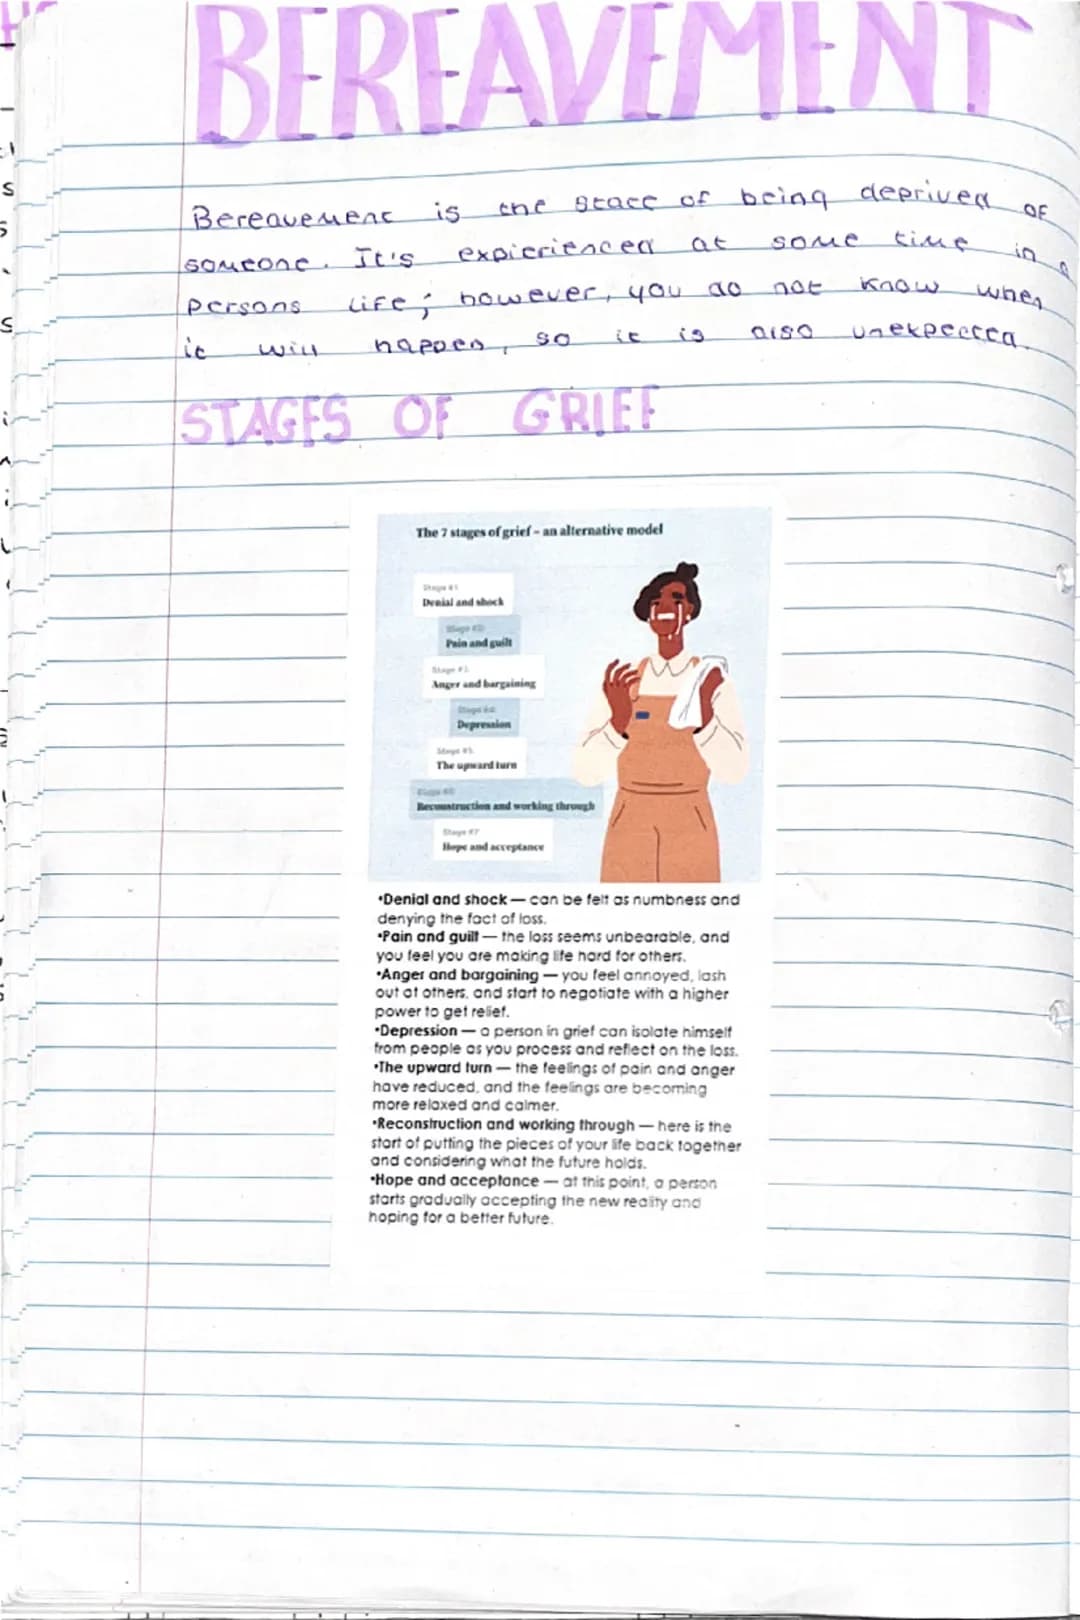 BEREAVEMENT
Bereavement is the state of being deprived of
someone. It's expieriienced at some time in a
persons life; however, you do not know when
it will happen, so it is also unexpected.
STAGES OF GRIEF
The 7 stages of grief – an alternative model
Stage #1
Denial and shock
Stage #2
Pain and guilt
Stage #3
Anger and bargaining
Stage #4
Depression
Stage #5
The upward turn
Stage #6
Reconstruction and working through
Stage #7
Hope and acceptance
•Denial and shock — can be felt as numbness and
denying the fact of loss.
•Pain and guilt — the loss seems unbearable, and
you feel you are making life hard for others.
•Anger and bargaining — you feel annoyed, lash
out at others, and start to negotiate with a higher
power to get relief.
•Depression — a person in grief can isolate himself
from people as you process and reflect on the loss.
•The upward turn — the feelings of pain and anger
have reduced, and the feelings are becoming
more relaxed and calmer.
•Reconstruction and working through — here is the
start of putting the pieces of your life back together
and considering what the future holds.
•Hope and acceptance — at this point, a person
starts gradually accepting the new reality and
hoping for a better future.